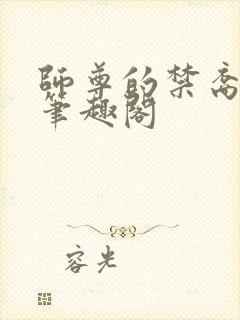 師尊的禁脔
筆趣閣
容光